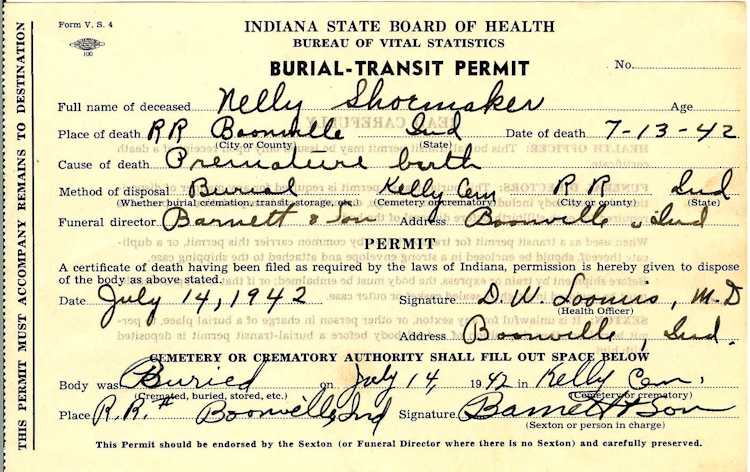 Form V. S. 4
INDIANA STATE BOARD OF HEALTH
BUREAU OF VITAL STATISTICS
BURIAL-TRANSIT PERMIT
No.
100
Full name of deceased Nelly Shoemaker Age
Place of death RR Boonville Ind Date of death 7-13-42
(City or County) (State)
Cause of death Premature birth
Method of disposal Burial Kelly Cem RR Ind
(Whether burial, cremation, transit, storage, etc.) (Cemetery or crematory) (City or county) (State)
Funeral director Barnett & Son Address Boonville, Ind
PERMIT
A certificate of death having been filed as required by the laws of Indiana, permission is hereby given to dispose
of the body as above stated.
Date July 14, 1942 Signature D. W. Loomis, M.D
(Health Officer)
Address Boonville, Ind.
CEMETERY OR CREMATORY AUTHORITY SHALL FILL OUT SPACE BELOW
Body was Buried on July 14, 1942 in Kelly Cem,
(Cremated, buried, stored, etc.) (Cemetery or crematory)
Place R.R.# Boonville, Ind Signature Barnett & Son
(Sexton or person in charge)
This Permit should be endorsed by the Sexton (or Funeral Director where there is no Sexton) and carefully preserved.
THIS PERMIT MUST ACCOMPANY REMAINS TO DESTINATION